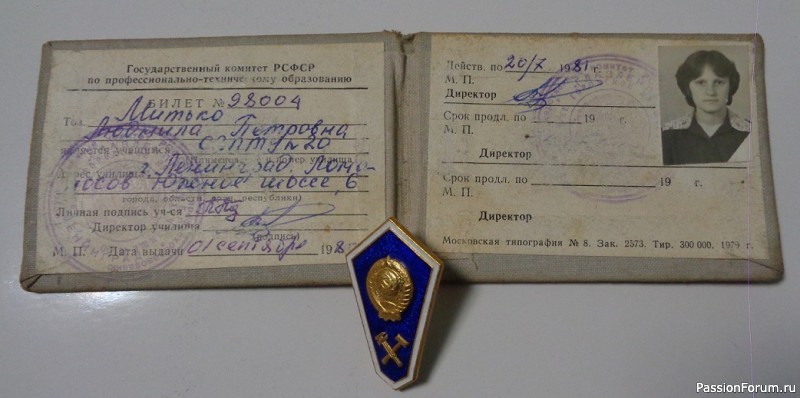 Государственный комитет РСФСР
по профессионально-техническому образованию
БИЛЕТ № 98004
Тов. Митько
Людмила Петровна
является учащимся СПТУ №20
и номер училища
г. Ленинград, Ломо-
носов Южное шоссе, 6
города, области, края, республики)
Личная подпись уч-ся
Директор училища
(подпись)
М. П. Дата выдачи 01 сентября 198
Действ. по 20/X 1981 г.
М. П.
Директор
Срок продл. по 19 г.
М. П.
Директор
Срок продл. по 19 г.
М. П.
Директор
Московская типография № 8. Зак. 2573. Тир. 300 000. 1979 г.
PassionForum.ru